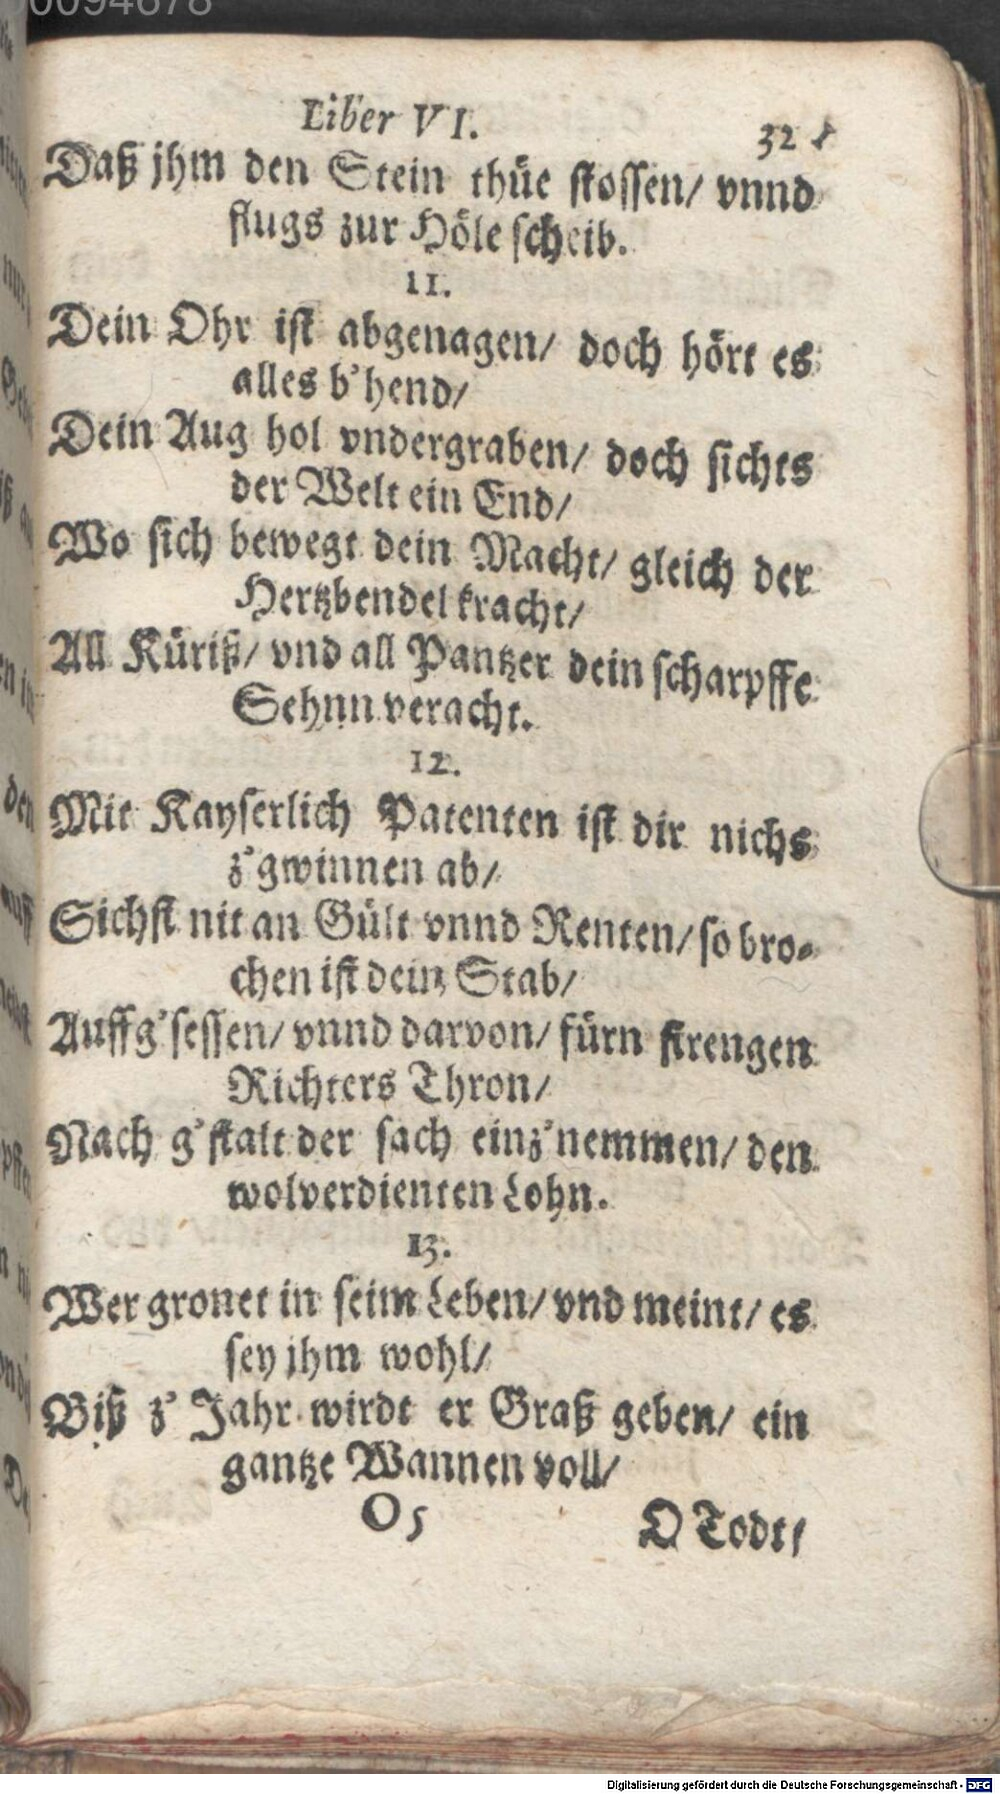 00094678
Liber VI. 321
Daß jhm den Stein thüe stossen/ vnnd
flugs zur Höle scheib.
11.
Dein Ohr ist abgenagen/ doch hört es
alles b'hend/
Dein Aug hol vndergraben/ doch sichts
der Welt ein End/
Wo sich bewegt dein Macht/ gleich der
Hertzbendel kracht/
All Küriß/ vnd all Pantzer dein scharpffe
Sehnn veracht.
12.
Mit Kayserlich Patenten ist dir nichs
z'gwinnen ab/
Sichst nit an Gült vnnd Renten/ so bro-
chen ist dein Stab/
Auffg'sessen/ vnnd darvon/ fürn strengen
Richters Thron/
Nach g'stalt der sach einz'nemmen/ den
wolverdienten Lohn.
13.
Wer gronet in seim Leben/ vnd meint/ es
sey jhm wohl/
Biß z' Jahr wirdt er Graß geben/ ein
gantze Wannen voll/
O 5 O Todt/
Digitalisierung gefördert durch die Deutsche Forschungsgemeinschaft - DFG